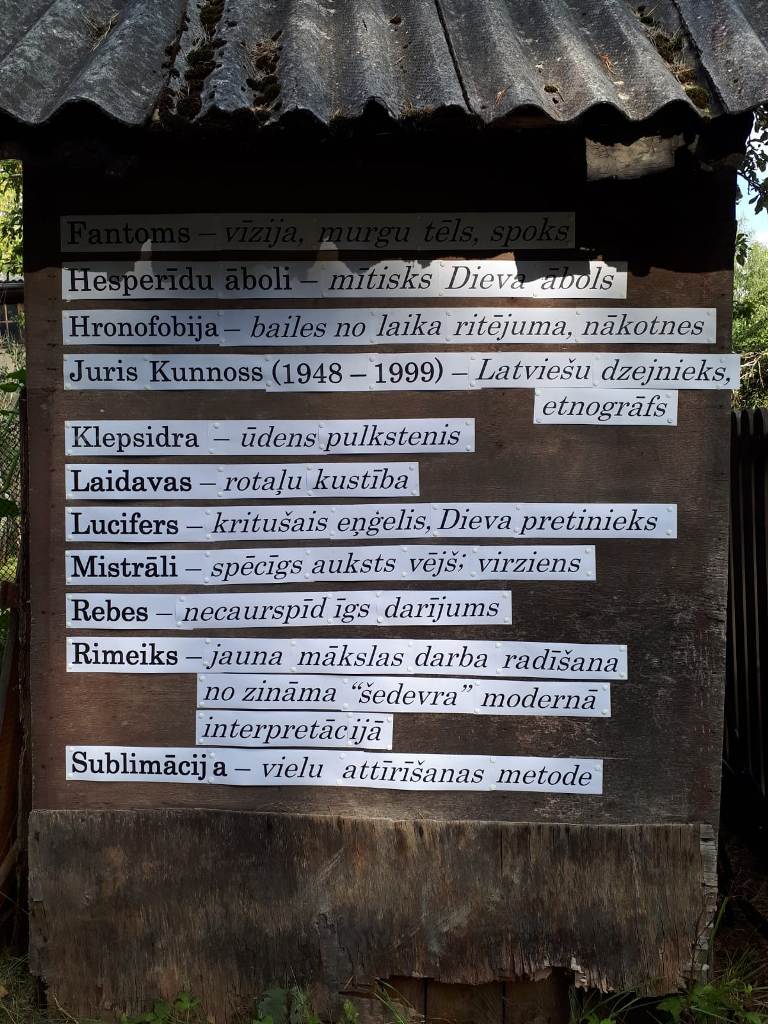 Fantoms – vīzija, murgu tēls, spoks
Hesperīdu āboli – mītisks Dieva ābols
Hronofobija – bailes no laika ritējuma, nākotnes
Juris Kunnoss (1948 – 1999) – Latviešu dzejnieks,
etnogrāfs
Klepsidra – ūdens pulkstenis
Laidavas – rotaļu kustība
Lucifers – kritušais eņģelis, Dieva pretinieks
Mistrāli – spēcīgs auksts vējš; virziens
Rebes – necaurspīd īgs darījums
Rimeiks – jauna mākslas darba radīšana
no zināma “šedevra” modernā
interpretācijā
Sublimācija – vielu attīrīšanas metode